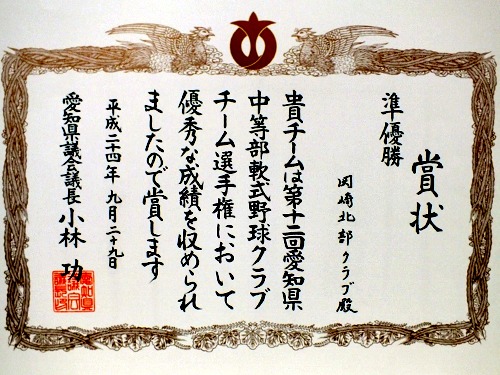 賞状
準優勝
岡崎北部クラブ殿
貴チームは第十二回愛知県
中等部軟式野球クラブ
チーム選手権において
優秀な成績を収められ
ましたので賞します
平成二十四年九月二十九日
愛知県議会議長 小林 功